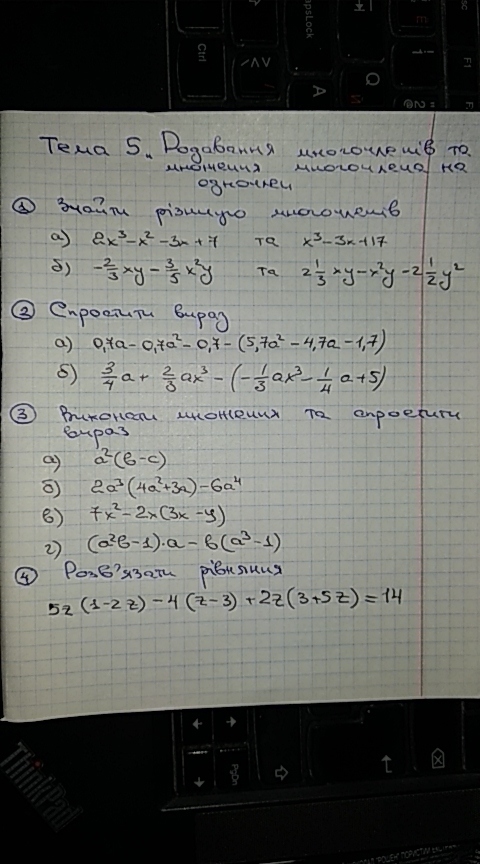 Тема 5. Додавання многочленів та
множення многочлена на
одночлен
① Знайти різницю многочленів
а) 2x³-x²-3x+7 та x³-3x+17
б) -2/3xy-3/5x²y та 2 1/3xy-x²y-2 1/2y²
② Спростити вираз
а) 0,7a-0,7a²-0,7-(5,7a²-4,7a-1,7)
б) 3/4a+2/3ax³-(-1/3ax³-1/4a+5)
③ Виконати множення та спростити
вираз
а) a²(b-c)
б) 2a³(4a²+3a)-6a⁴
в) 7x²-2x(3x-y)
г) (a²b-1)·a-b(a³-1)
④ Розв'язати рівняння
5z(1-2z)-4(z-3)+2z(3+5z)=14
Ctrl
CapsLock
A
Q
F1
PgDn
ThinkPad